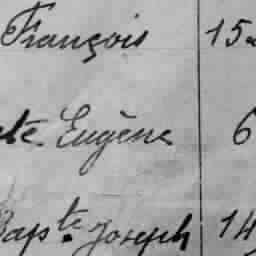 François 15
te Eugène 6
Bapte Joseph 14